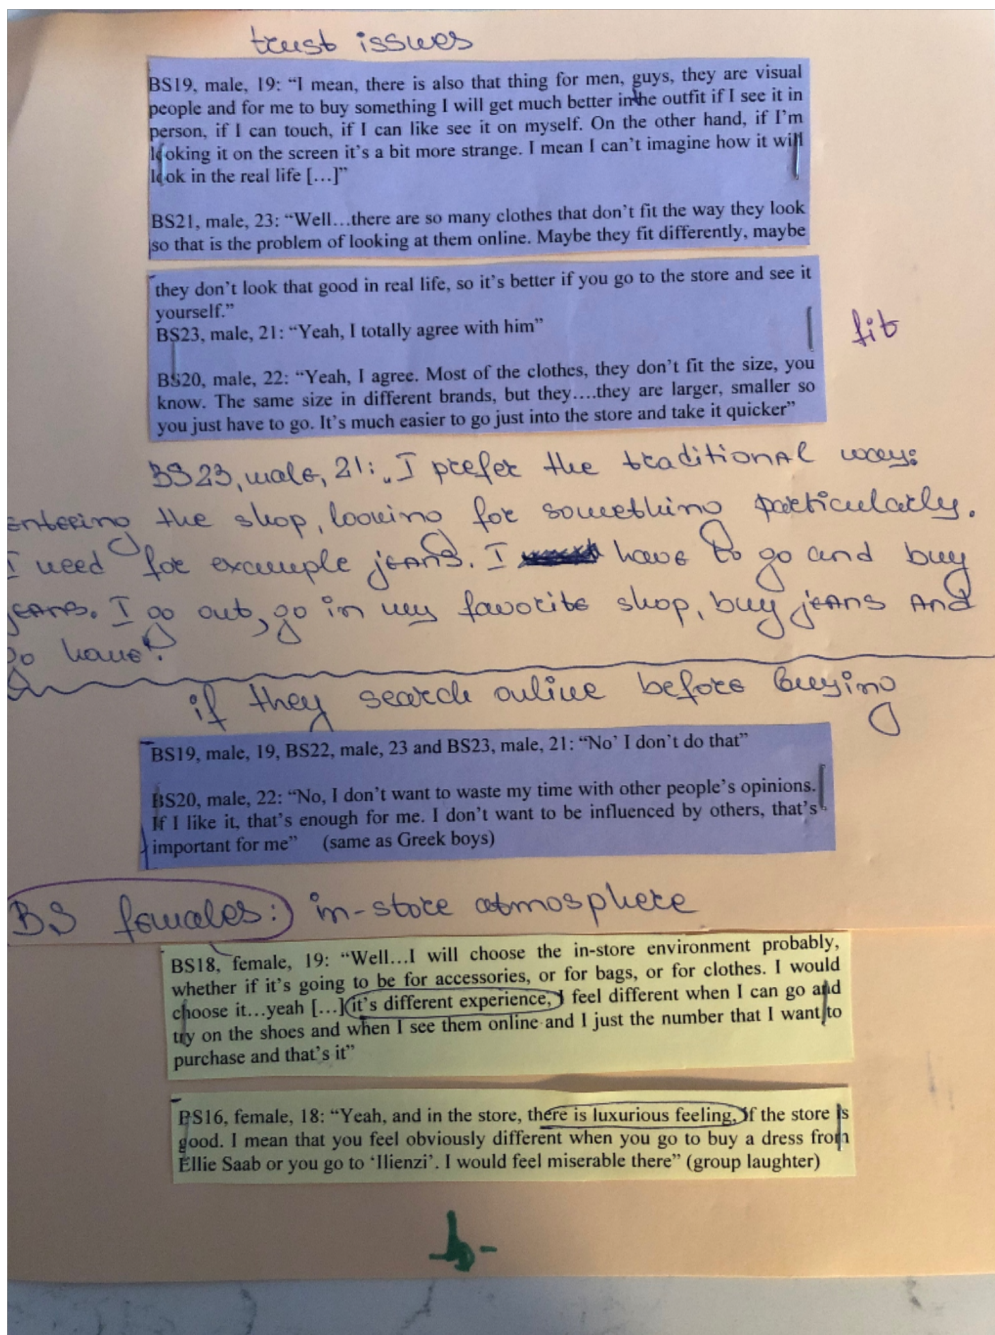 trust issues
BS19, male, 19: “I mean, there is also that thing for men, guys, they are visual
people and for me to buy something I will get much better in the outfit if I see it in
person, if I can touch, if I can like see it on myself. On the other hand, if I’m
looking it on the screen it’s a bit more strange. I mean I can’t imagine how it will
look in the real life [...]”
BS21, male, 23: “Well…there are so many clothes that don’t fit the way they look
so that is the problem of looking at them online. Maybe they fit differently, maybe
they don’t look that good in real life, so it’s better if you go to the store and see it
yourself.”
BS23, male, 21: “Yeah, I totally agree with him”
fit
BS20, male, 22: “Yeah, I agree. Most of the clothes, they don’t fit the size, you
know. The same size in different brands, but they….they are larger, smaller so
you just have to go. It’s much easier to go just into the store and take it quicker”
BS23, male, 21: „I prefer the traditional way:
entering the shop, looking for something particularly.
I need for example jeans. I have to go and buy
jeans. I go out, go in my favorite shop, buy jeans and
go home“.
if they search online before buying
BS19, male, 19, BS22, male, 23 and BS23, male, 21: “No’ I don’t do that”
BS20, male, 22: “No, I don’t want to waste my time with other people’s opinions.
If I like it, that’s enough for me. I don’t want to be influenced by others, that’s
important for me” (same as Greek boys)
BS females: in-store atmosphere
BS18, female, 19: “Well…I will choose the in-store environment probably,
whether if it’s going to be for accessories, or for bags, or for clothes. I would
choose it…yeah [...] it’s different experience, I feel different when I can go and
try on the shoes and when I see them online and I just the number that I want to
purchase and that’s it”
BS16, female, 18: “Yeah, and in the store, there is luxurious feeling, if the store is
good. I mean that you feel obviously different when you go to buy a dress from
Ellie Saab or you go to ‘Ilienzi’. I would feel miserable there” (group laughter)